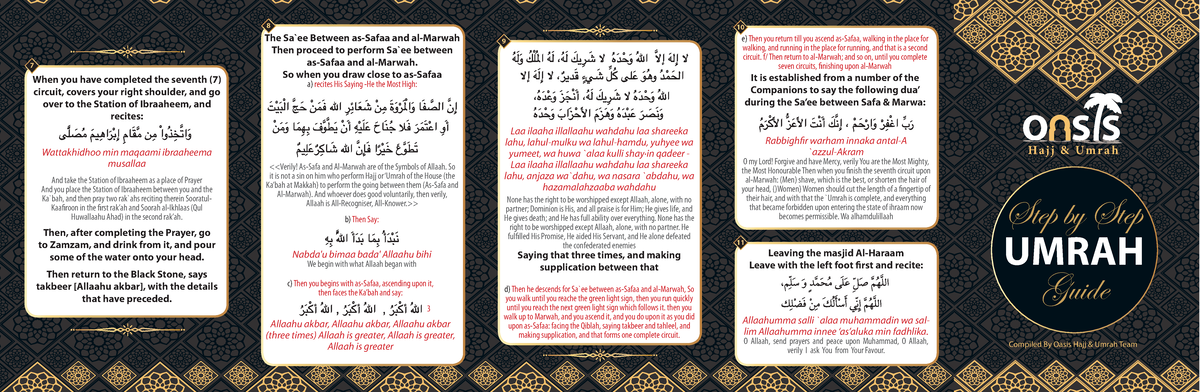 7
When you have completed the seventh (7)
circuit, covers your right shoulder, and go
over to the Station of Ibraaheem, and
recites:
وَاتَّخِذُوا مِن مَّقَامِ إِبْرَاهِيمَ مُصَلًّى
Wattakhidhoo min maqaami ibraaheema
musallaa
And take the Station of Ibraaheem as a place of Prayer
And you place the Station of Ibraaheem between you and the
Ka`bah, and then pray two rak`ahs reciting therein Sooratul-
Kaafiroon in the first rak'ah and Soorah al-Ikhlaas (Qul
Huwallaahu Ahad) in the second rak'ah.
Then, after completing the Prayer, go
to Zamzam, and drink from it, and pour
some of the water onto your head.
Then return to the Black Stone, says
takbeer [Allaahu akbar], with the details
that have preceded.
8
The Sa`ee Between as-Safaa and al-Marwah
Then proceed to perform Sa`ee between
as-Safaa and al-Marwah.
So when you draw close to as-Safaa
a) recites His Saying -He the Most High:
إِنَّ الصَّفَا وَالْمَرْوَةَ مِنْ شَعَائِرِ الله فَمَنْ حَجَّ الْبَيْتَ
أَوِ اعْتَمَرَ فَلَا جُنَاحَ عَلَيْهِ أَنْ يَطَّوَّفَ بِهِمَا وَمَنْ
تَطَوَّعَ خَيْرًا فَإِنَّ الله شَاكِرٌ عَلِيمٌ
<<Verily! As-Safa and Al-Marwah are of the Symbols of Allaah. So
it is not a sin on him who perform Hajj or'Umrah of the House (the
Ka'bah at Makkah) to perform the going between them (As-Safa and
Al-Marwah). And whoever does good voluntarily, then verily,
Allaah is All-Recogniser, All-Knower.>>
b) Then Say:
نَبْدَأُ بِمَا بَدَأَ اللهُ بِهِ
Nabda'u bimaa bada' Allaahu bihi
We begin with what Allaah began with
c) Then you begins with as-Safaa, ascending upon it,
then faces the Ka'bah and say:
اللهُ أَكْبَرُ , اللهُ أَكْبَرُ , اللهُ أَكْبَرُ 3
Allaahu akbar, Allaahu akbar, Allaahu akbar
(three times) Allaah is greater, Allaah is greater,
Allaah is greater
9
لا إِلهَ إِلاَّ اللهُ وَحْدَهُ لا شَرِيكَ لَهُ، لَهُ الْمُلْكُ وَلَهُ
الحَمْدُ وهُوَ عَلى كُلِّ شَيءٍ قَدِيرٌ، لا إِلَهَ إلا
اللهُ وَحْدَهُ لا شَرِيكَ لَهُ، أَنْجَزَ وَعْدَهُ،
وَنَصَرَ عَبْدَهُ وَهَزَمَ الأَحْزَابَ وَحْدَهُ
Laa ilaaha illallaahu wahdahu laa shareeka
lahu, lahul-mulku wa lahul-hamdu, yuhyee wa
yumeet, wa huwa `alaa kulli shay-in qadeer -
Laa ilaaha illallaahu wahdahu laa shareeka
lahu, anjaza wa`dahu, wa nasara `abdahu, wa
hazamalahzaaba wahdahu
None has the right to be worshipped except Allaah, alone, with no
partner; Dominion is His, and all praise is for Him; He gives life, and
He gives death; and He has full ability over everything. None has the
right to be worshipped except Allaah, alone, with no partner. He
fulfilled His Promise, He aided His Servant, and He alone defeated
the confederated enemies
Saying that three times, and making
supplication between that
d) Then he descends for Sa`ee between as-Safaa and al-Marwah, So
you walk until you reache the green light sign, then you run quickly
until you reach the next green light sign which follows it, then you
walk up to Marwah, and you ascend it, and you do upon it as you did
upon as-Safaa: facing the Qiblah, saying takbeer and tahleel, and
making supplication, and that forms one complete circuit.
10
e) Then you return till you ascend as-Safaa, walking in the place for
walking, and running in the place for running, and that is a second
circuit. f/ Then return to al-Marwah; and so on, until you complete
seven circuits, finishing upon al-Marwah
It is established from a number of the
Companions to say the following dua'
during the Sa'ee between Safa & Marwa:
رَبِّ اغْفِرْ وَارْحَمْ ، إِنَّكَ أَنْتَ الأَعَزُّ الأَكْرَمُ
Rabbighfir warham innaka antal-A
`azzul-Akram
O my Lord! Forgive and have Mercy, verily You are the Most Mighty,
the Most Honourable Then when you finish the seventh circuit upon
al-Marwah: (Men) shave, which is the best, or shorten the hair of
your head, ()Women) Women should cut the length of a fingertip of
their hair, and with that the `Umrah is complete, and everything
that became forbidden upon entering the state of ihraam now
becomes permissible. Wa alhamdulillaah
11
Leaving the masjid Al-Haraam
Leave with the left foot first and recite:
اللَّهُمَّ صَلِّ عَلَى مُحَمَّدٍ وَ سَلِّمِ،
اللَّهُمَّ إِنِّي أَسْأَلُكَ مِنْ فَضْلِكَ
Allaahumma salli `alaa muhammadin wa sal-
lim Allaahumma innee 'as'aluka min fadhlika.
O Allaah, send prayers and peace upon Muhammad, O Allaah,
verily I ask You from Your Favour.
oasis
Hajj & Umrah
Step by Step
UMRAH
Guide
Compiled By Oasis Hajj & Umrah Team